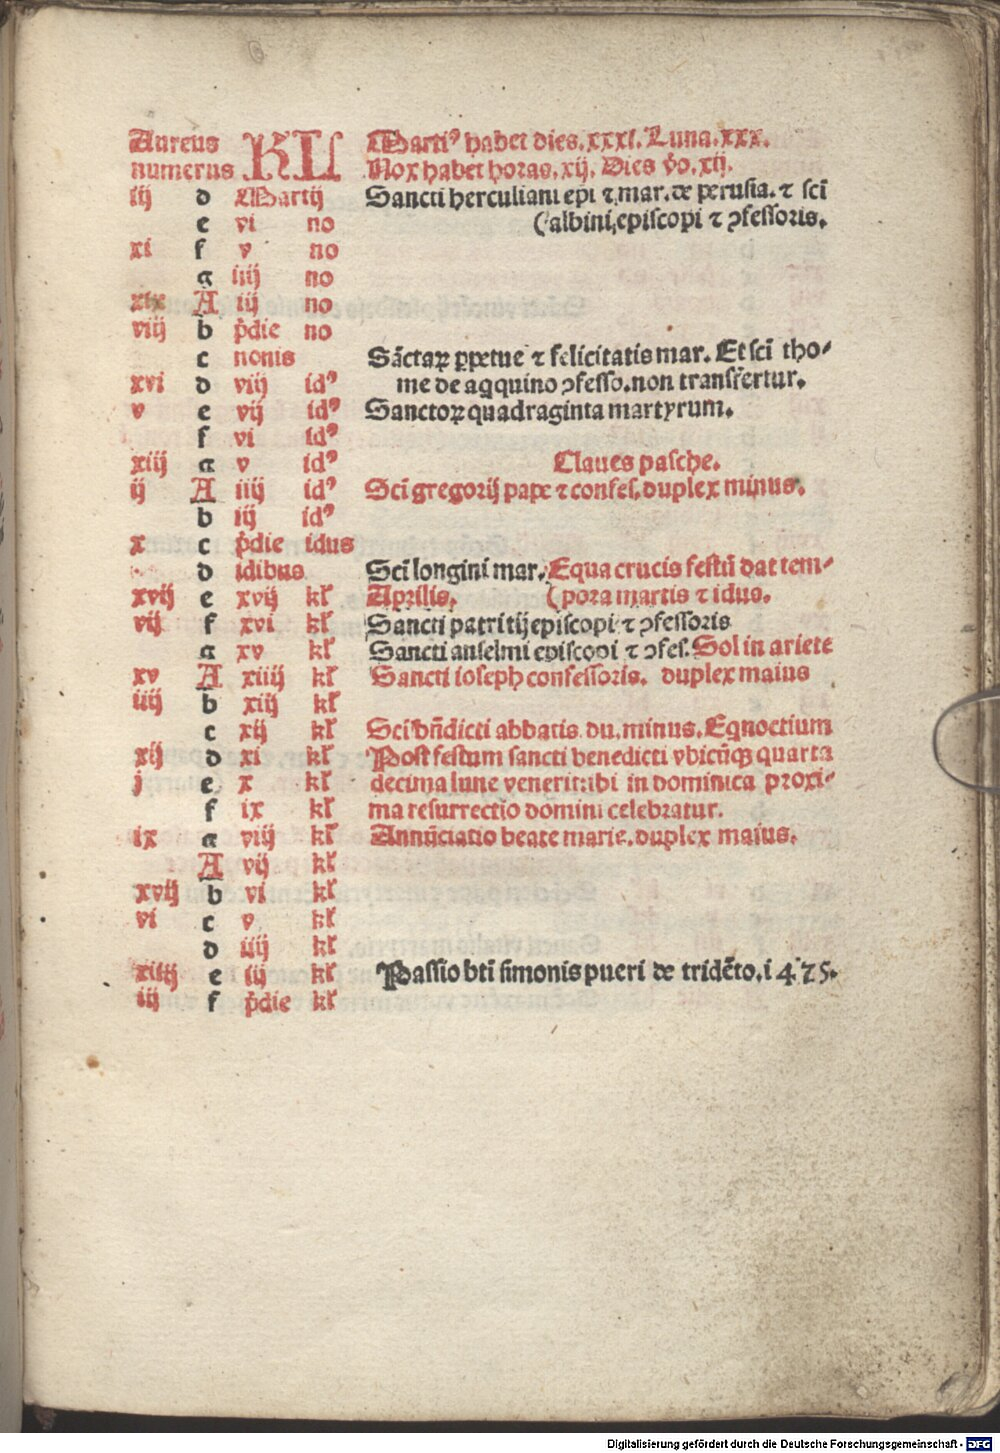 Aureus KL Marti⁹ habet dies. xxxi. Luna. xxx.
numerus Nox habet horas. xij. Dies v̊o. xij.
iij d Martij Sancti herculiani epi ⁊ mar. de perusia. ⁊ sci̅
e vi no (albini, episcopi ⁊ ꝯfessoris.
xi f v no
g iiij no
xix A iij no
viij b p̊die no
c nonis Sa̅ctaꝝ ꝑpetue ⁊ felicitatis mar. Et sci̅ tho-
xvi d viij id⁹ me de aqquino ꝯfesso. non transfertur.
v e vij id⁹ Sanctoꝝ quadraginta martyrum.
f vi id⁹
xiij g v id⁹ Claues pasche.
ij A iiij id⁹ Sci̅ gregorij pape ⁊ confes. duplex minus.
b iij id⁹
x c p̊die idus
d idibus Sci̅ longini mar. Equa crucis festu̅ dat tem-
xvij e xvij kl̓ Aprilis. (pora martis ⁊ idus.
vij f xvi kl̓ Sancti patritij episcopi ⁊ ꝯfessoris
g xv kl̓ Sancti anselmi episcopi ⁊ ꝯfes. Sol in ariete
xv A xiiij kl̓ Sancti ioseph confessoris. duplex maius
iiij b xiij kl̓
c xij kl̓ Sci bn̅dicti abbatis. du. minus. Eqnoctium
xij d xi kl̓ Post festum sancti benedicti vbicu̅qꝫ quarta
j e x kl̓ decima lune venerit: ibi in dominica proxi-
f ix kl̓ ma resurrectio domini celebratur.
ix g viij kl̓ Annu̅ciatio beate marie. duplex maius.
A vij kl̓
xvij b vi kl̓
vi c v kl̓
d iiij kl̓
xiiij e iij kl̓ Passio bti̅ simonis pueri de tride̅to. i475.
iij f p̊die kl̓
Digitalisierung gefördert durch die Deutsche Forschungsgemeinschaft - DFG